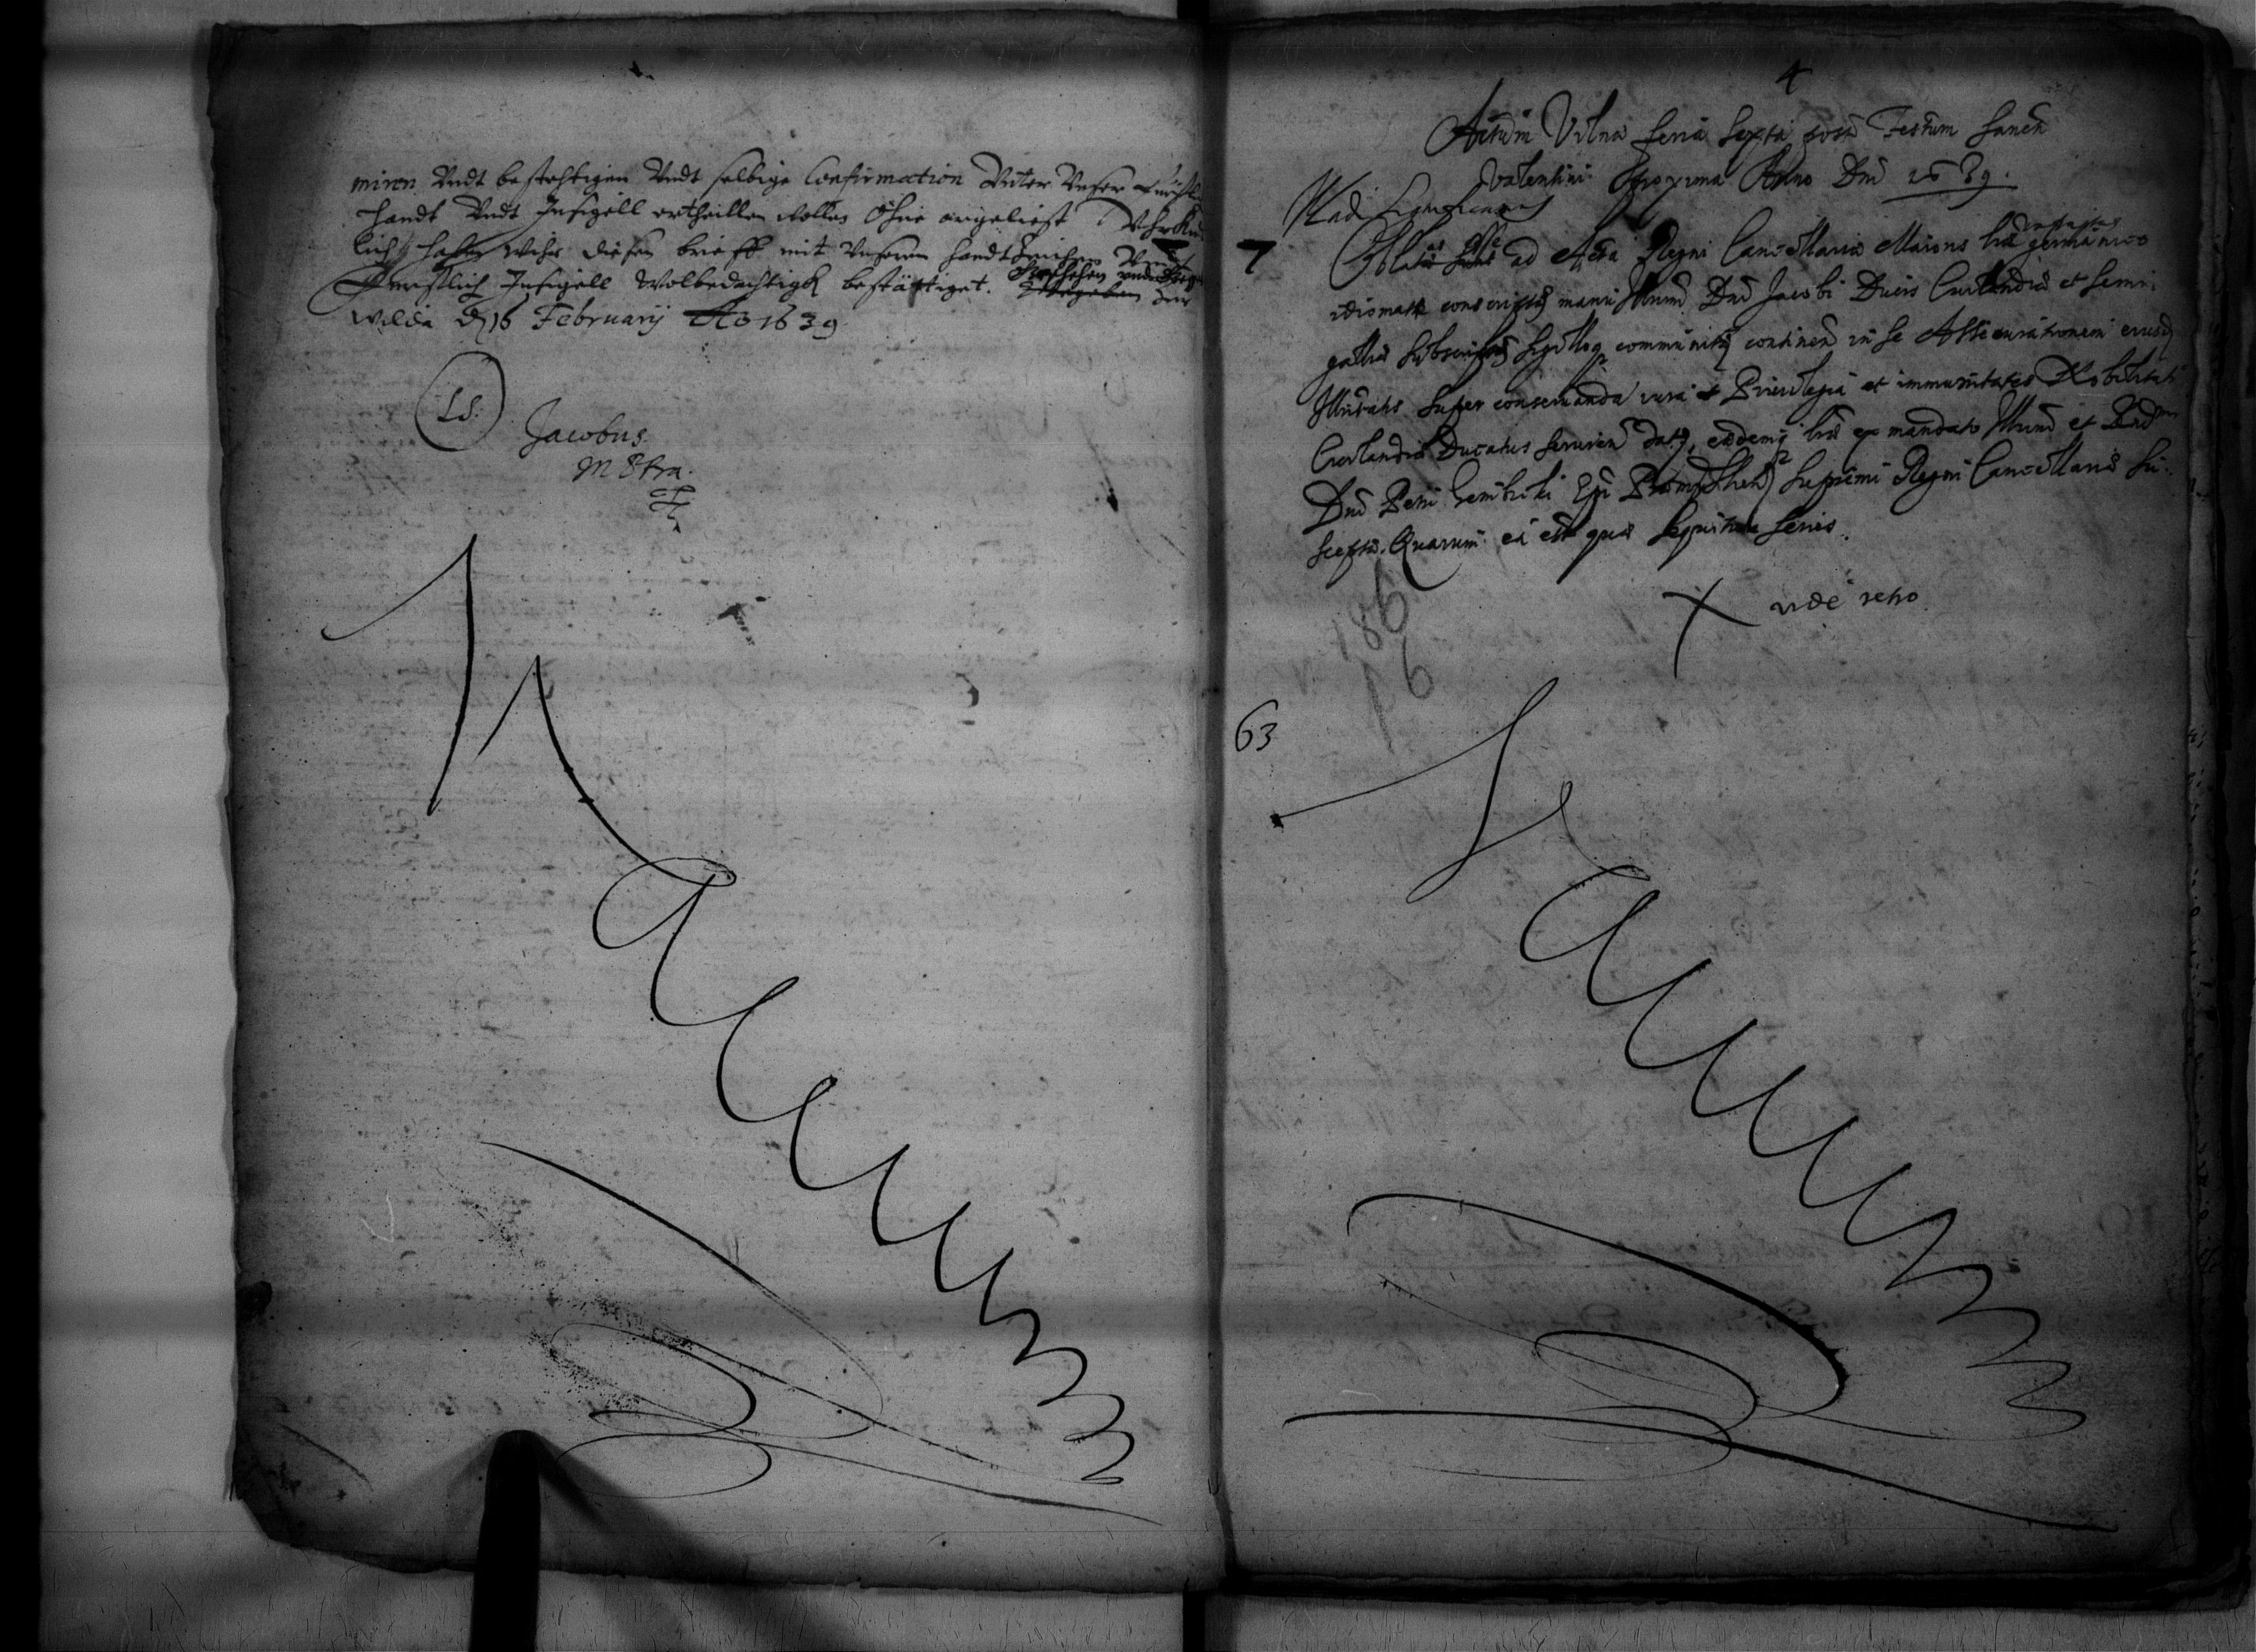 miren Undt bestehtigen Undt selbige Confirmation Unter Unser
Handt Undt Insigell ertheillen wollen Ohne argelist Uhrkund
lich haben wihr diesen brieff mit Unserm handtzeichen Undt
Fürstlich Insigell Wolbedachtigk bestättiget. Geschehen zur
Wilda d 16 February Ao 1639
LS.
Jacobus
mppra.
4
Actum Vilnæ feria sexta post Festum Sancti
Valentini proxima Anno Dni 1639.
7
Oblatas esse ad Acta Regni Cancellariæ Maioris lras infrascriptas germanico
idiomate conscriptas manu Illmi Dni Jacobi Ducis Curlandiæ et Semi
galliæ subscriptas sigilloq communitas continen in se Assecurationem eiusd
Illmtatis super conservanda iura et Privilegia et immunitates Nobilitati
Curlandiæ Ducatus servien datas, easdemq lras ex mandato Illmi et Rndmi
Dni Petri Gembicki Epi Præmisliensis Supremi Regni Cancellarii su-
sceptas. Quarum ea est quæ sequitur series.
X vide retro
186
16
63